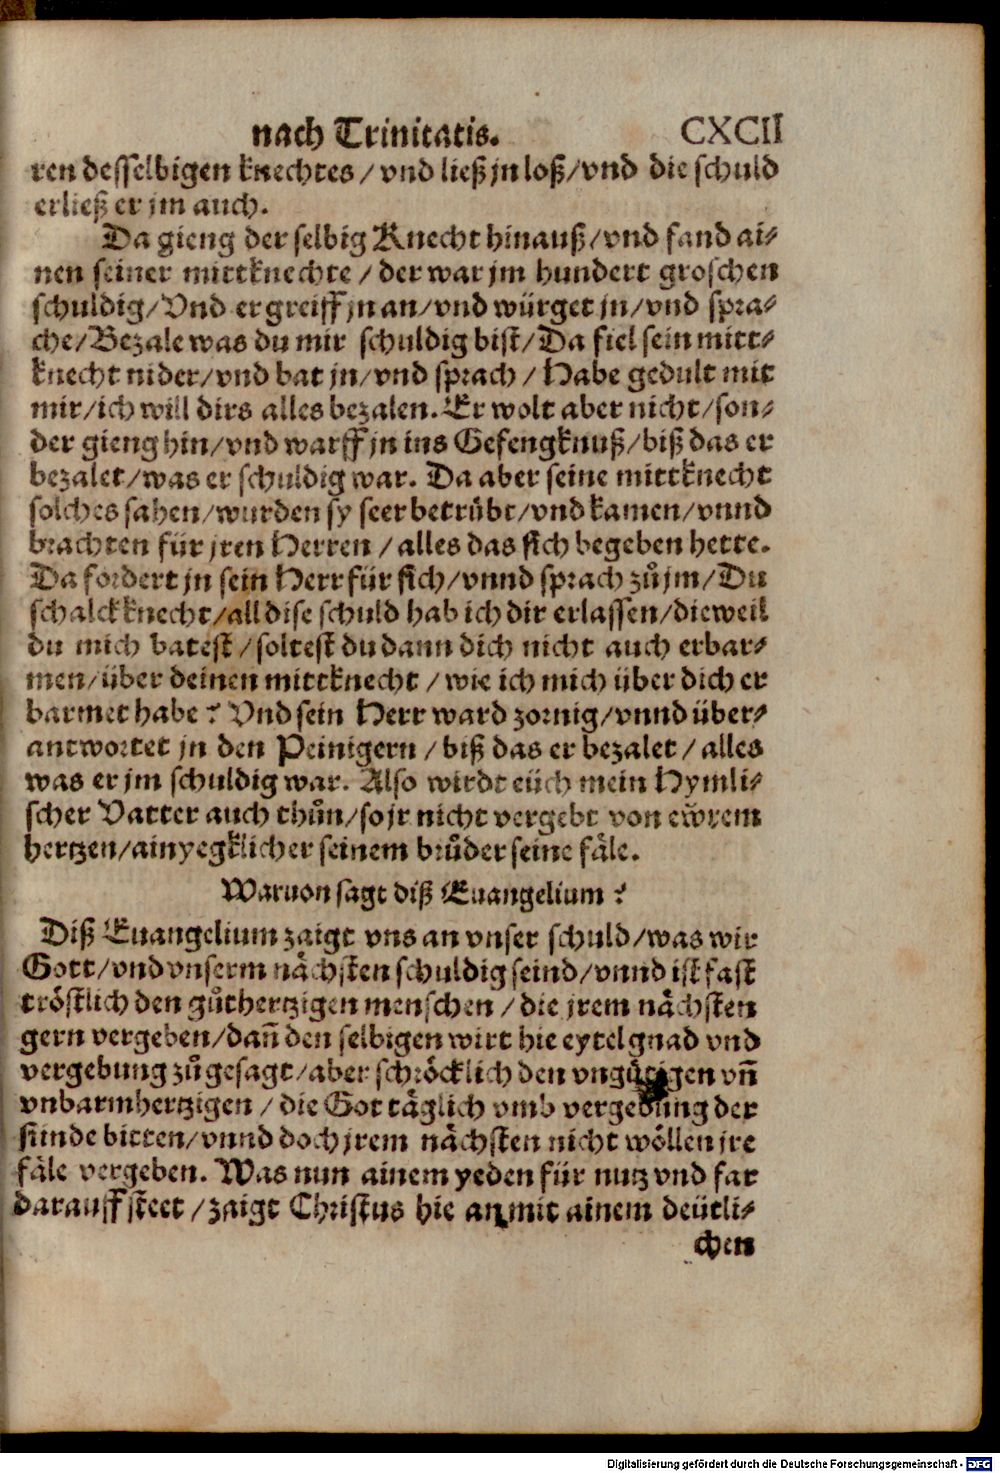 nach Trinitatis. CXCII
ren desselbigen knechtes / vnd ließ jn loß / vnd die schuld
erließ er jm auch.
Da gieng der selbig Knecht hinauß / vnd fand ai-
nen seiner mittknechte / der war jm hundert groschen
schuldig / Vnd er greiff jn an / vnd würget jn / vnd spra-
che / Bezale was du mir schuldig bist / Da fiel sein mitt-
knecht nider / vnd bat jn / vnd sprach / Habe gedult mit
mir / ich will dirs alles bezalen. Er wolt aber nicht / son-
der gieng hin / vnd warff jn ins Gefengknuß / biß das er
bezalet / was er schuldig war. Da aber seine mittknecht
solches sahen / wurden sy seer betrübt / vnd kamen / vnnd
brachten für jren Herren / alles das sich begeben hette.
Da fordert jn sein Herr für sich / vnnd sprach zůjm / Du
schalckknecht / all dise schuld hab ich dir erlassen / dieweil
du mich batest / soltest du dann dich nicht auch erbar-
men / über deinen mittknecht / wie ich mich über dich er
barmet habe? Vnd sein Herr ward zornig / vnnd über-
antwortet jn den Peinigern / biß das er bezalet / alles
was er jm schuldig war. Also wirdt eüch mein Hymli-
scher Vatter auch thůn / so jr nicht vergebt von ew̃rem
hertzen / ain yegklicher seinem brůder seine fäle.
Waruon sagt diß Euangelium?
Diß Euangelium zaigt vns an vnser schuld / was wir
Gott / vnd vnserm nächsten schuldig seind / vnnd ist fast
tröstlich den gůthertzigen menschen / die jrem nächsten
gern vergeben / dañ den selbigen wirt hie eytel gnad vnd
vergebung zůgesagt / aber schröcklich den vngütigen vñ
vnbarmhertzigen / die Got täglich vmb vergebung der
sünde bitten / vnnd doch jrem nächsten nicht wöllen jre
fäle vergeben. Was nun ainem yeden für nutz vnd far
darauff steet / zaigt Christus hie an mit ainem deütli-
chen
Digitalisierung gefördert durch die Deutsche Forschungsgemeinschaft - DFG